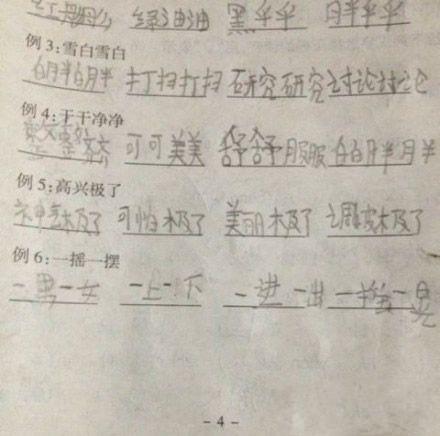 绿油油 黑乎乎 胖乎乎
例 3:雪白雪白
白胖白胖 打扫打扫 研究研究 讨论讨论
例 4:干干净净
整整齐齐 可可美美 舒舒服服 白白胖胖
例 5:高兴极了
神气极了 可怕极了 美丽极了 调皮极了
例 6:一摇一摆
一男一女 一上一下 一进一出 一摇一晃
- 4 -